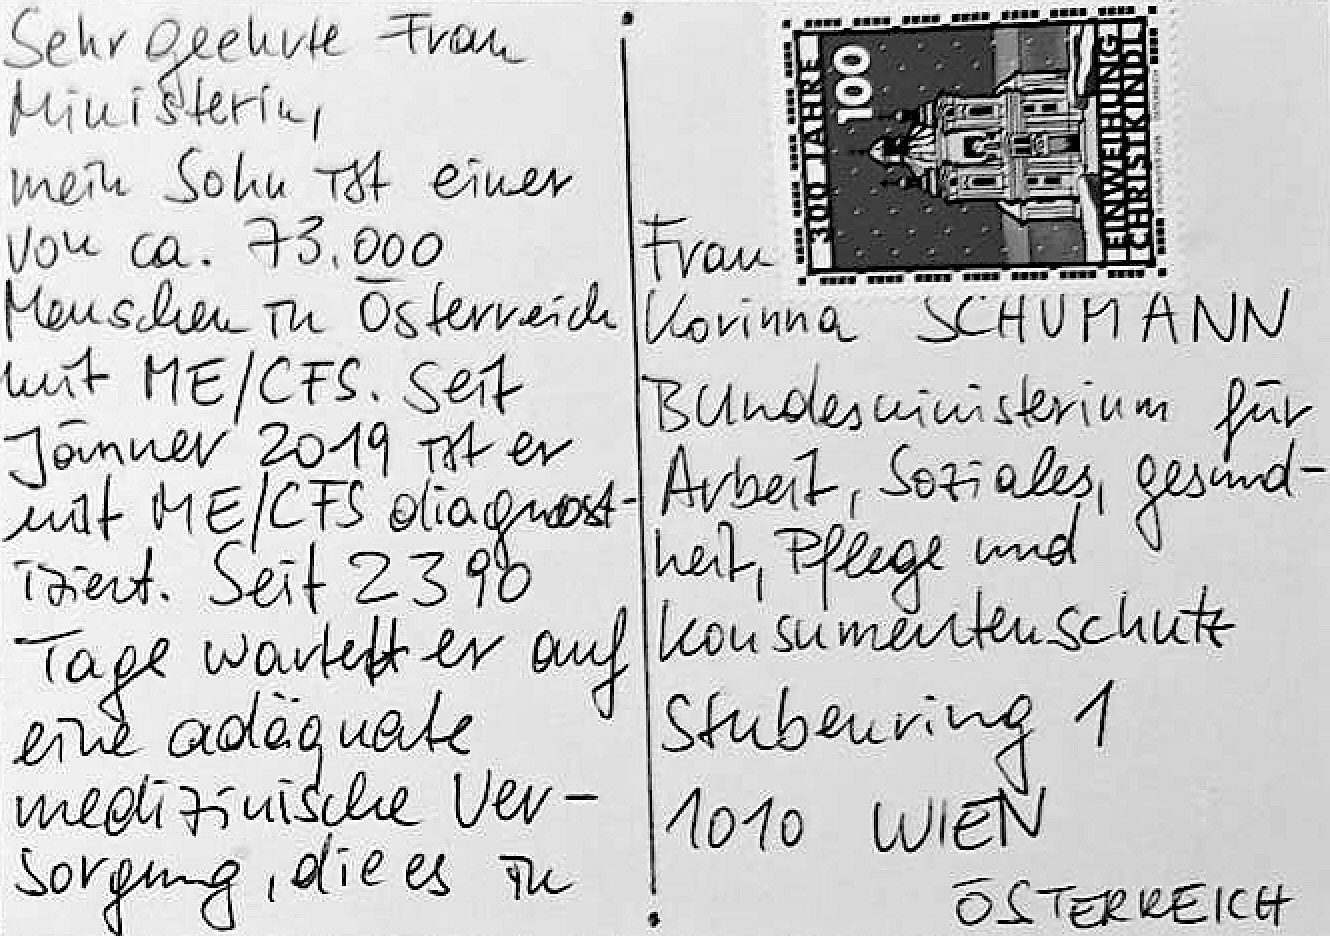 Sehr geehrte Frau
Ministerin,
mein Sohn ist einer
von ca. 73.000
Menschen in Österreich
mit ME/CFS. Seit
Jänner 2019 ist er
mit ME/CFS diagnost-
iziert. Seit 2390
Tage wartet er auf
eine adäquate
medizinische Ver-
sorgung, die es in
300 JAHRE
100
EINWEIHUNG
CHRISTKINDL
Frau
Korinna SCHUMANN
Bundesministerium für
Arbeit, Soziales, gesund-
heit, Pflege und
Konsumentenschutz
Stubenring 1
1010 WIEN
ÖSTERREICH